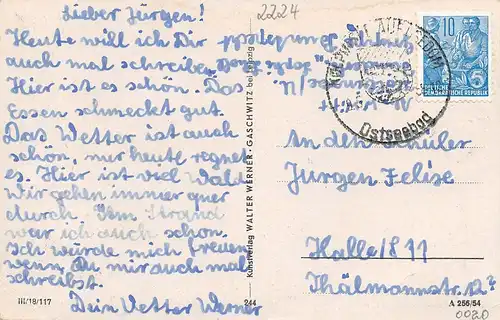 2224
Lieber Jürgen!
Heute will ich Dir
auch mal schreiben.
Hier ist es schön. Das
Essen schmeckt gut.
Das Wetter ist auch
schön, nur heute regnet
es. Hier ist viel Wald
Wir gehen immer quer
durch. Am Strand
war ich auch schon.
Ich würde mich freuen
wenn Du mir auch mal
schreibst.
Dein Vetter Werner
III/18/117
244
Kunstverlag WALTER WERNER · GASCHWITZ bei Leipzig
Ostseebad
10
5
DEUTSCHE
DEMOKRATISCHE REPUBLIK
An den Schüler
Jürgen Felise
Halle/S 11
Thälmannstr. 12
A 256/54
0020